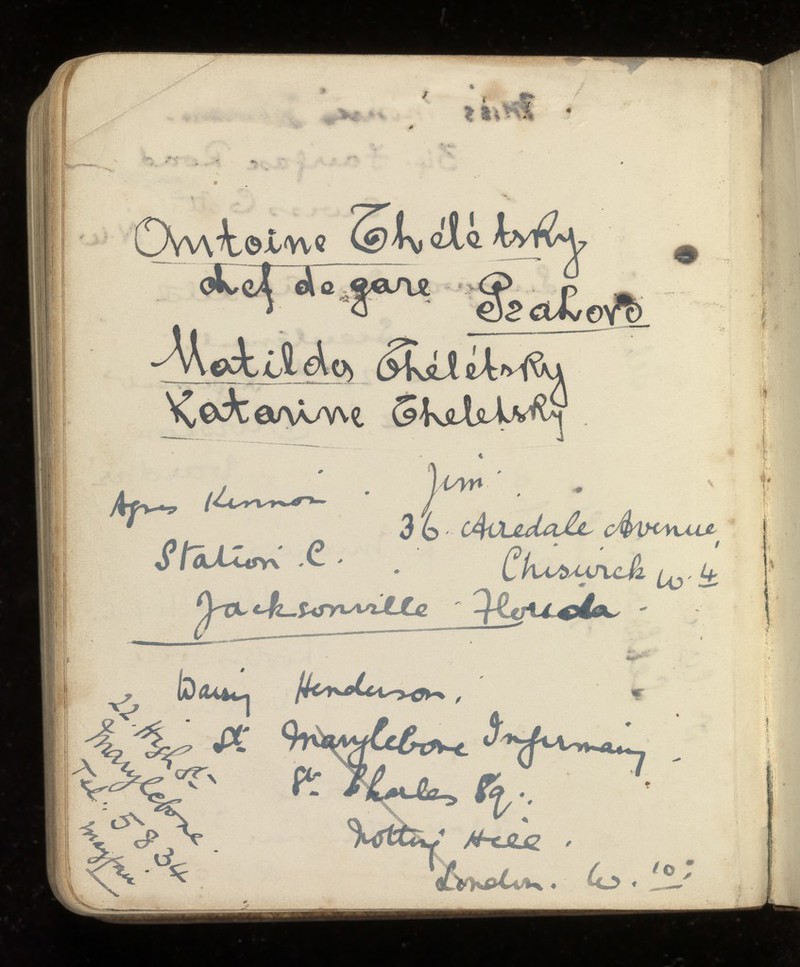 Antoine Thélétsky
chef de gare Prahovo
Matilda Thélétsky
Katarine Theletsky
Agnes Kinnon . Jim
36. Airedale Avenue,
Station . C . Chiswick W. 4
Jacksonville - Florida -
Henderson.
St. Marylebone Infirmary .
St. Charles Sq.
Notting Hill .
London. W. 10.
22. High St.
Marylebone.
Tel: 5834
Mayfair